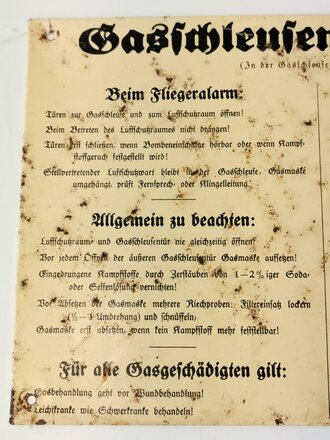 Gasschleusen
(In der Gasschleuse
Beim Fliegeralarm:
Türen zur Gasschleuse und zum Luftschutzraum öffnen!
Beim Betreten des Luftschutzraumes nicht drängen!
Türen erst schließen, wenn Bombeneinschläge hörbar oder wenn Kampf-
stoffgeruch festgestellt wird!
Stellvertretender Luftschutzwart bleibt in der Gasschleuse, Gasmaske
umgehängt, prüft Fernsprech- oder Klingelleitung.
Allgemein zu beachten:
Luftschutzraum- und Gasschleusentür nie gleichzeitig öffnen!
Vor jedem Öffnen der äußeren Gasschleusentür Gasmaske aufsetzen!
Eingedrungene Kampfstoffe durch Zerstäuben von 1—2%iger Soda-
oder Seifenlösung vernichten!
Vor Absetzen der Gasmaske mehrere Riechproben: Filtereinsatz lockern
(½—1 Umdrehung) und schnüffeln;
Gasmaske erst absetzen, wenn kein Kampfstoff mehr feststellbar!
Für alle Gasgeschädigten gilt:
Gasbehandlung geht vor Wundbehandlung!
Leichtkranke wie Schwerkranke behandeln!